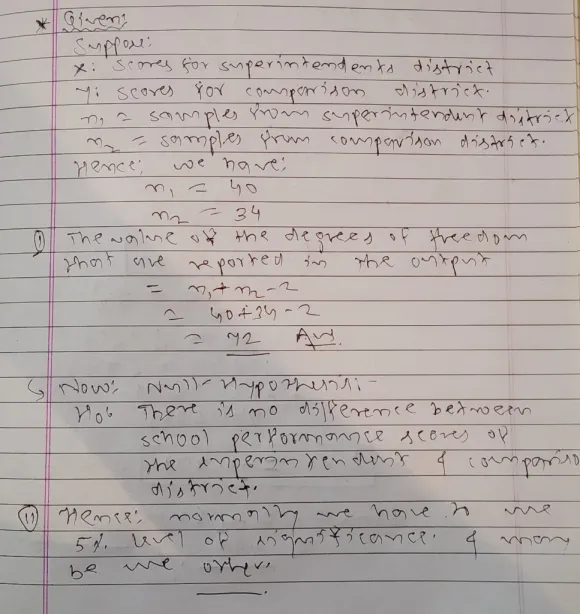 * Given:
Suppose:
x: scores for superintendents district
y: scores for comparison district.
n₁ = samples from superintendent district
n₂ = samples from comparison district.
Hence: we have:
n₁ = 40
n₂ = 34
(i) The value of the degrees of freedom
that are reported in the output
= n₁+n₂-2
= 40+34-2
= 72 Ans.
↳ Now: Null-Hypothesis:-
H₀: There is no difference between
school performance scores of
the superintendent & comparison
district.
(ii) Hence: normally we have to use
5% level of significance. & may
be use other.